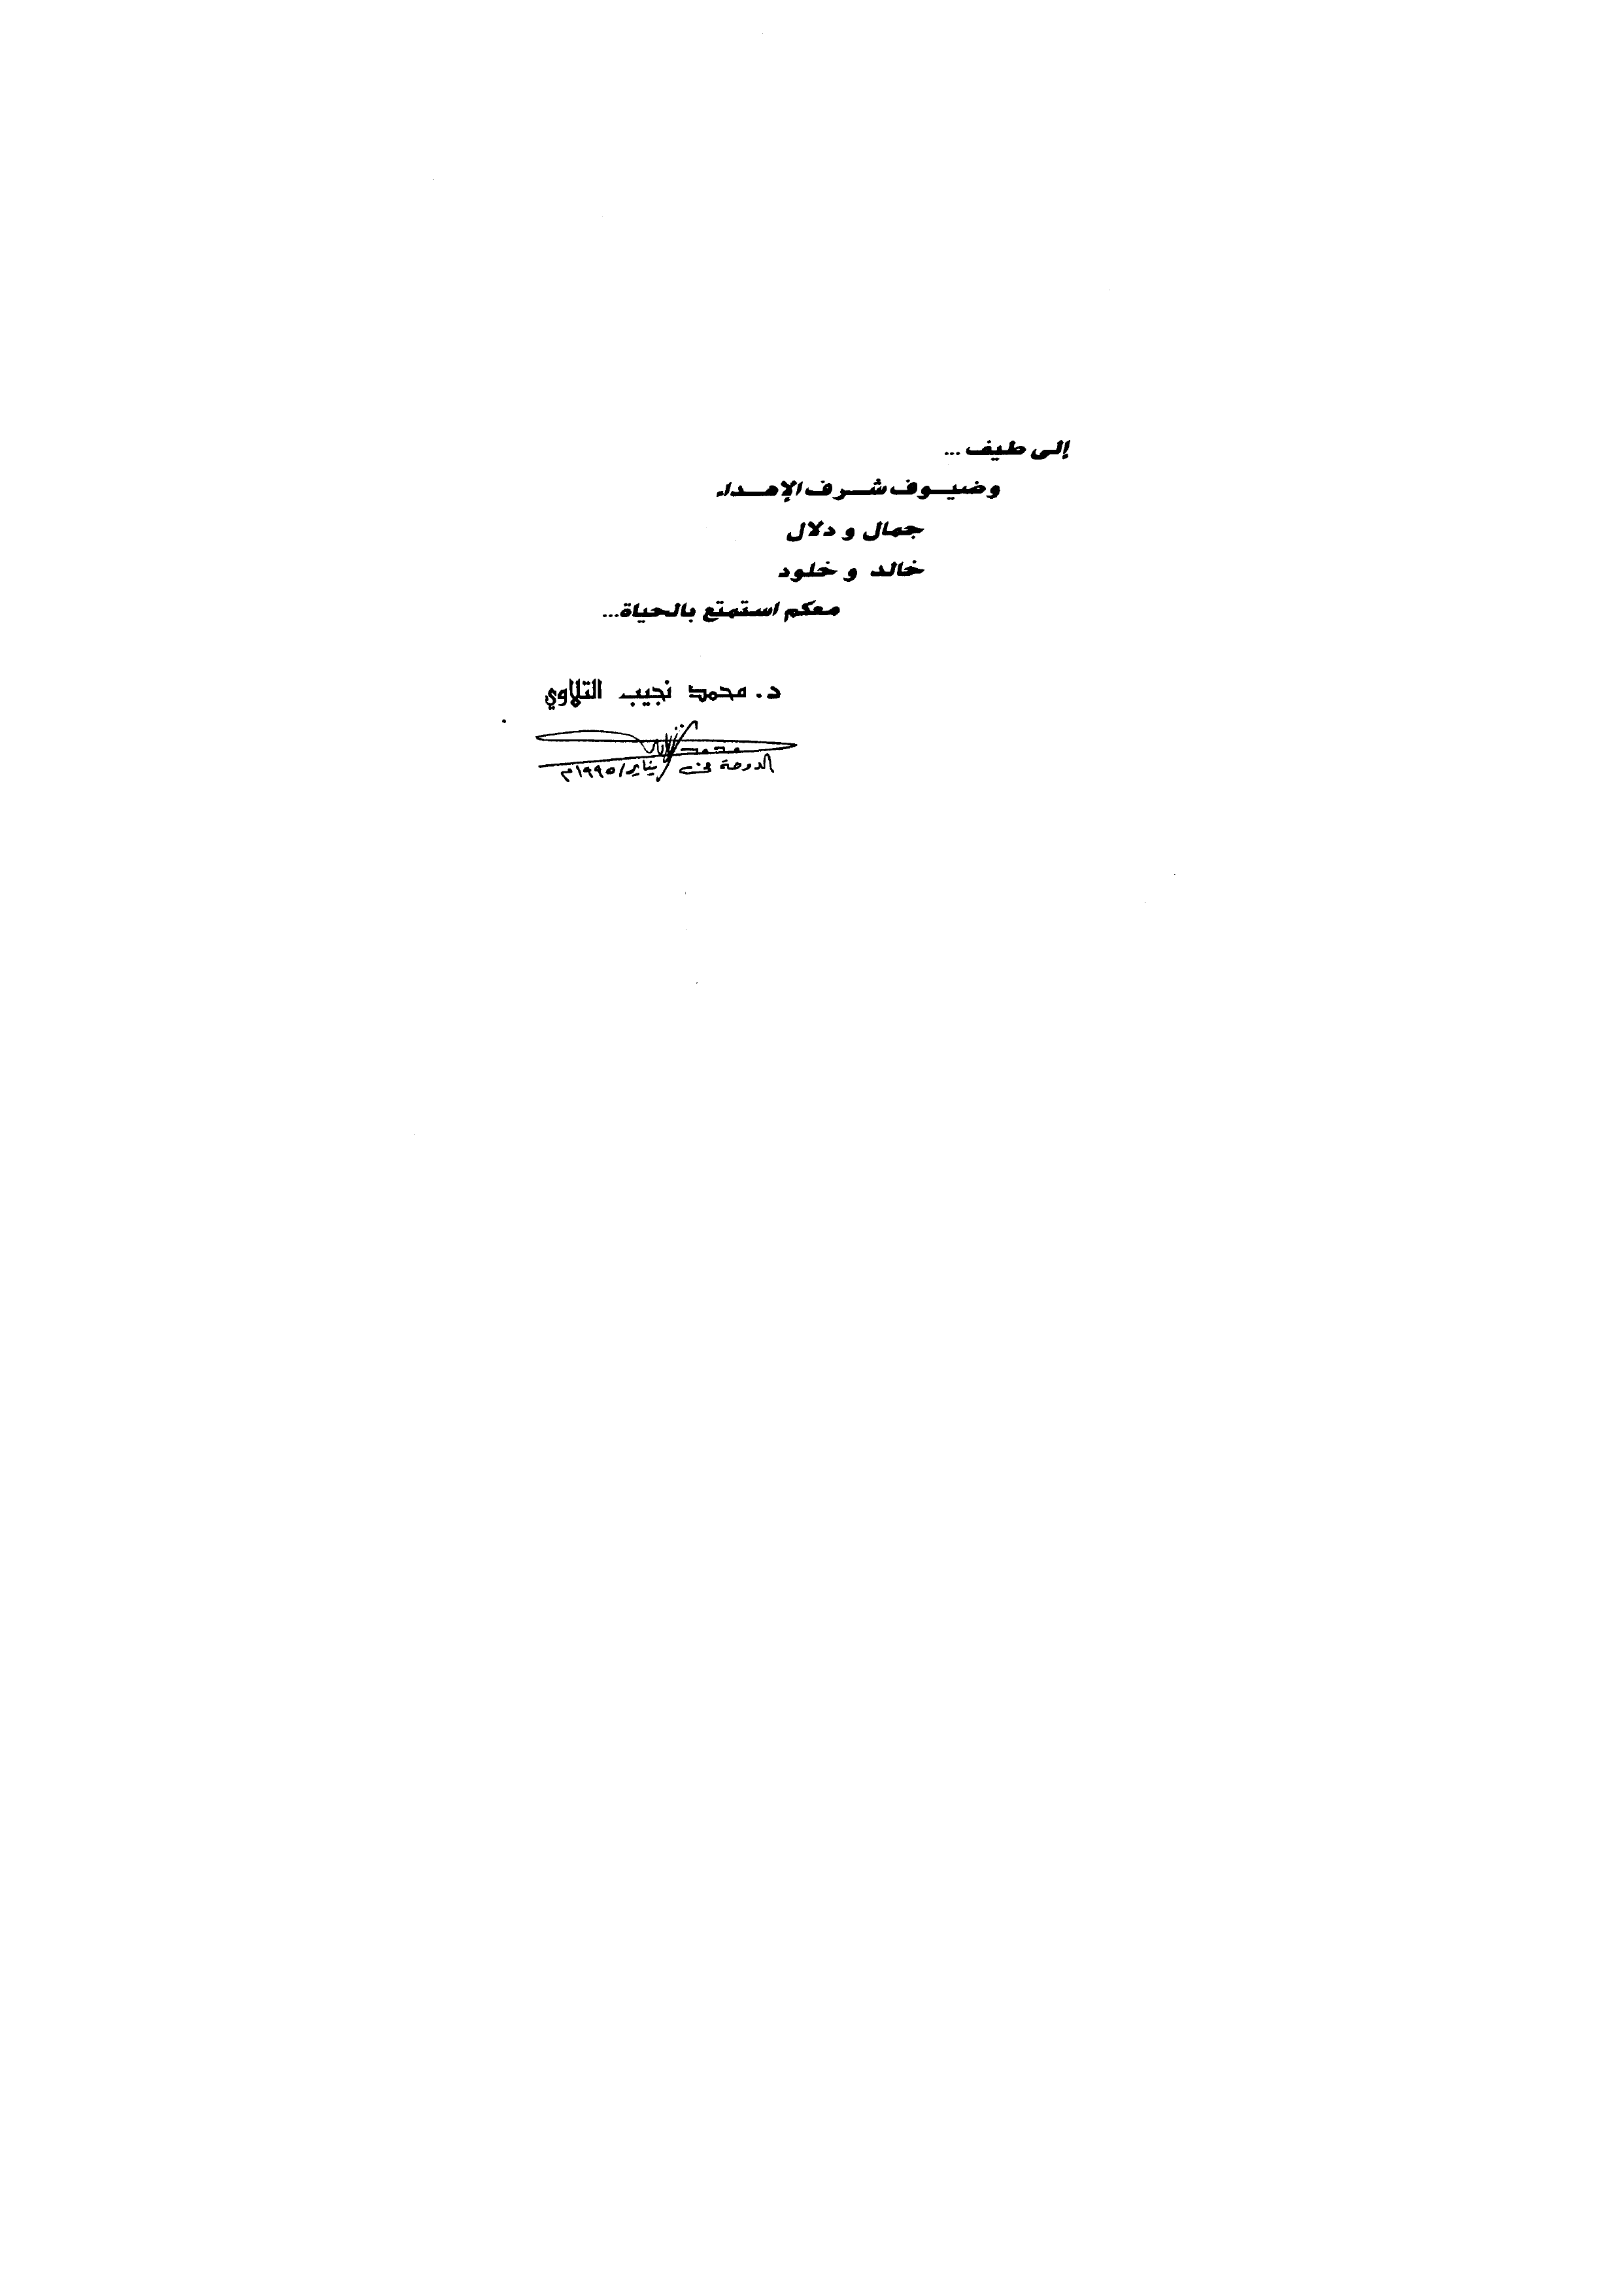 إلى طيف ...
وضيوف شرف الإهداء
جمال و دلال
خالد و خلود
معكم استمتع بالحياة...
د. محمد نجيب التلاوي
محمد
الدوحة في يناير/١٩٩٥م